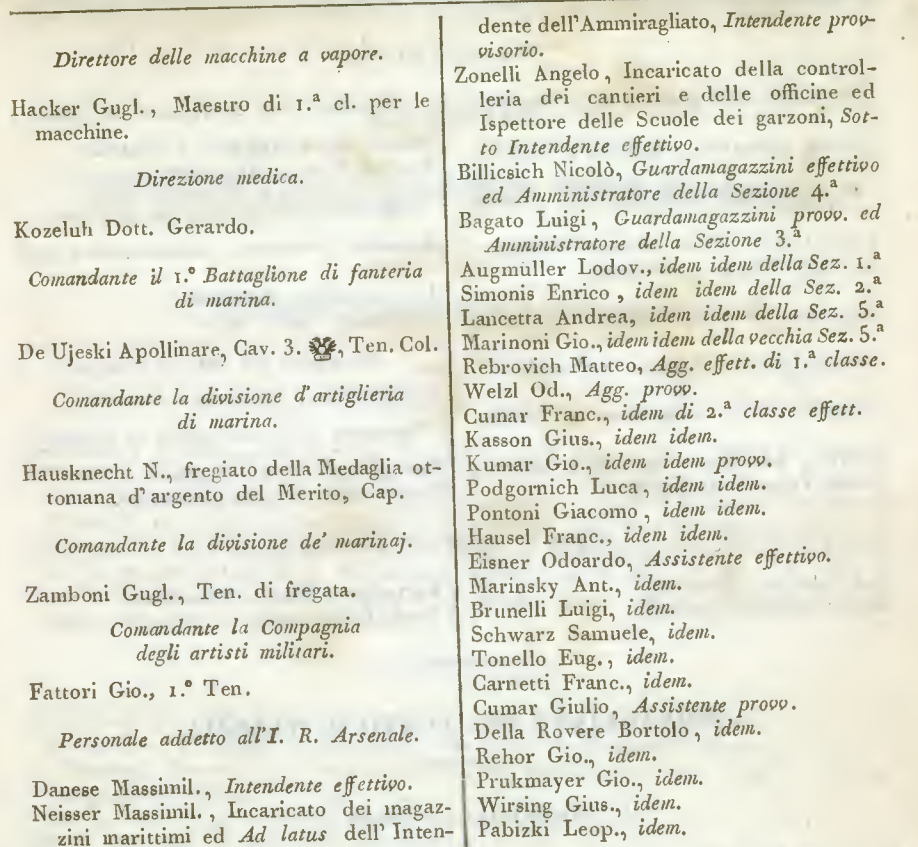 Direttore delle macchine a vapore.
Hacker Gugl., Maestro di 1.ª cl. per le
macchine.
Direzione medica.
Kozeluh Dott. Gerardo.
Comandante il 1.º Battaglione di fanteria
di marina.
De Ujeski Apollinare, Cav. 3. , Ten. Col.
Comandante la divisione d'artiglieria
di marina.
Hausknecht N., fregiato della Medaglia ot-
tomana d'argento del Merito, Cap.
Comandante la divisione de' marinaj.
Zamboni Gugl., Ten. di fregata.
Comandante la Compagnia
degli artisti militari.
Fattori Gio., 1.º Ten.
Personale addetto all'I. R. Arsenale.
Danese Massimil., Intendente effettivo.
Neisser Massimil., Incaricato dei magaz-
zini marittimi ed Ad latus dell'Inten-
dente dell'Ammiragliato, Intendente prov-
visorio.
Zonelli Angelo, Incaricato della control-
leria dei cantieri e delle officine ed
Ispettore delle Scuole dei garzoni, Sot-
to Intendente effettivo.
Billicsich Nicolò, Guardamagazzini effettivo
ed Amministratore della Sezione 4.ª
Bagato Luigi, Guardamagazzini provv. ed
Amministratore della Sezione 3.ª
Augmüller Lodov., idem idem della Sez. 1.ª
Simonis Enrico, idem idem della Sez. 2.ª
Lancetta Andrea, idem idem della Sez. 5.ª
Marinoni Gio., idem idem della vecchia Sez. 5.ª
Rebrovich Matteo, Agg. effett. di 1.ª classe.
Welzl Od., Agg. provv.
Cumar Franc., idem di 2.ª classe effett.
Kasson Gius., idem idem.
Kumar Gio., idem idem provv.
Podgornich Luca, idem idem.
Pontoni Giacomo, idem idem.
Hausel Franc., idem idem.
Eisner Odoardo, Assistente effettivo.
Marinsky Ant., idem.
Brunelli Luigi, idem.
Schwarz Samuele, idem.
Tonello Eug., idem.
Carnetti Franc., idem.
Cumar Giulio, Assistente provv.
Della Rovere Bortolo, idem.
Rehor Gio., idem.
Prukmayer Gio., idem.
Wirsing Gius., idem.
Pabizki Leop., idem.